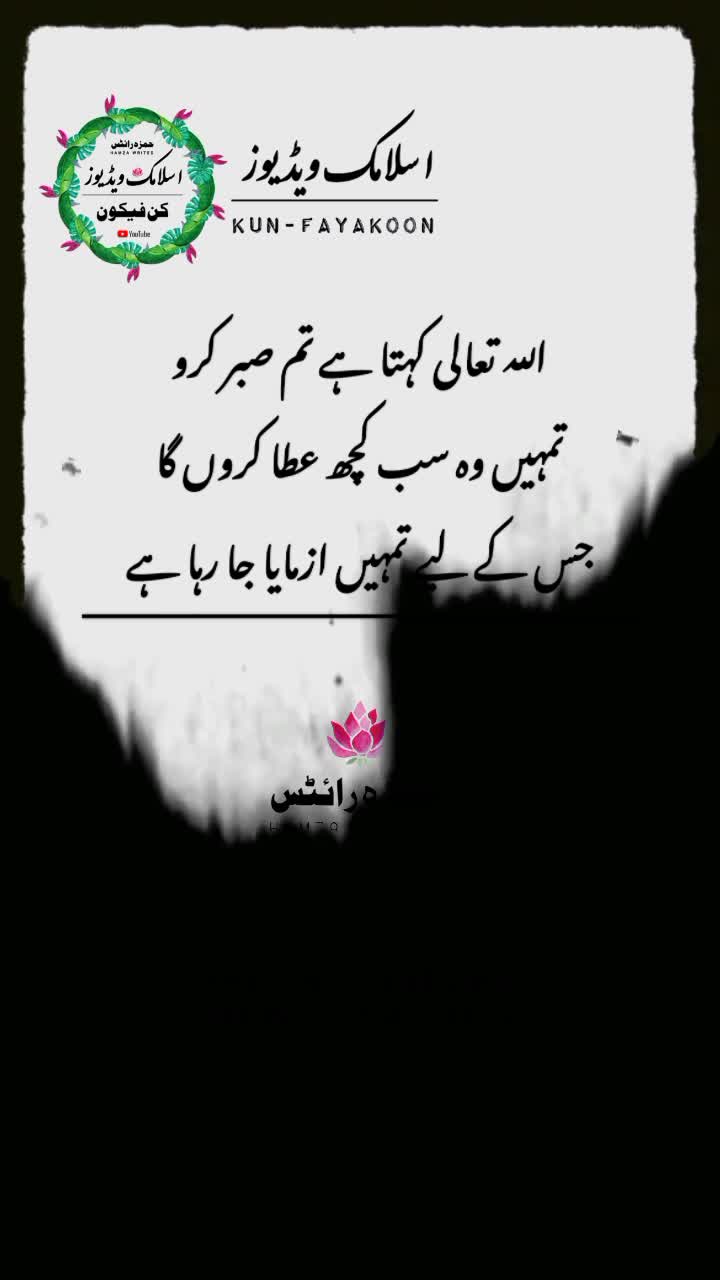 حمزہ رائٹس
HAMZA WRITES
اسلامک ویڈیوز
کن فیکون
YouTube
اسلامک ویڈیوز
KUN-FAYAKOON
اللہ تعالی کہتا ہے تم صبر کرو
تمہیں وہ سب کچھ عطا کروں گا
جس کے لیے تمہیں ازمایا جا رہا ہے
رائٹس